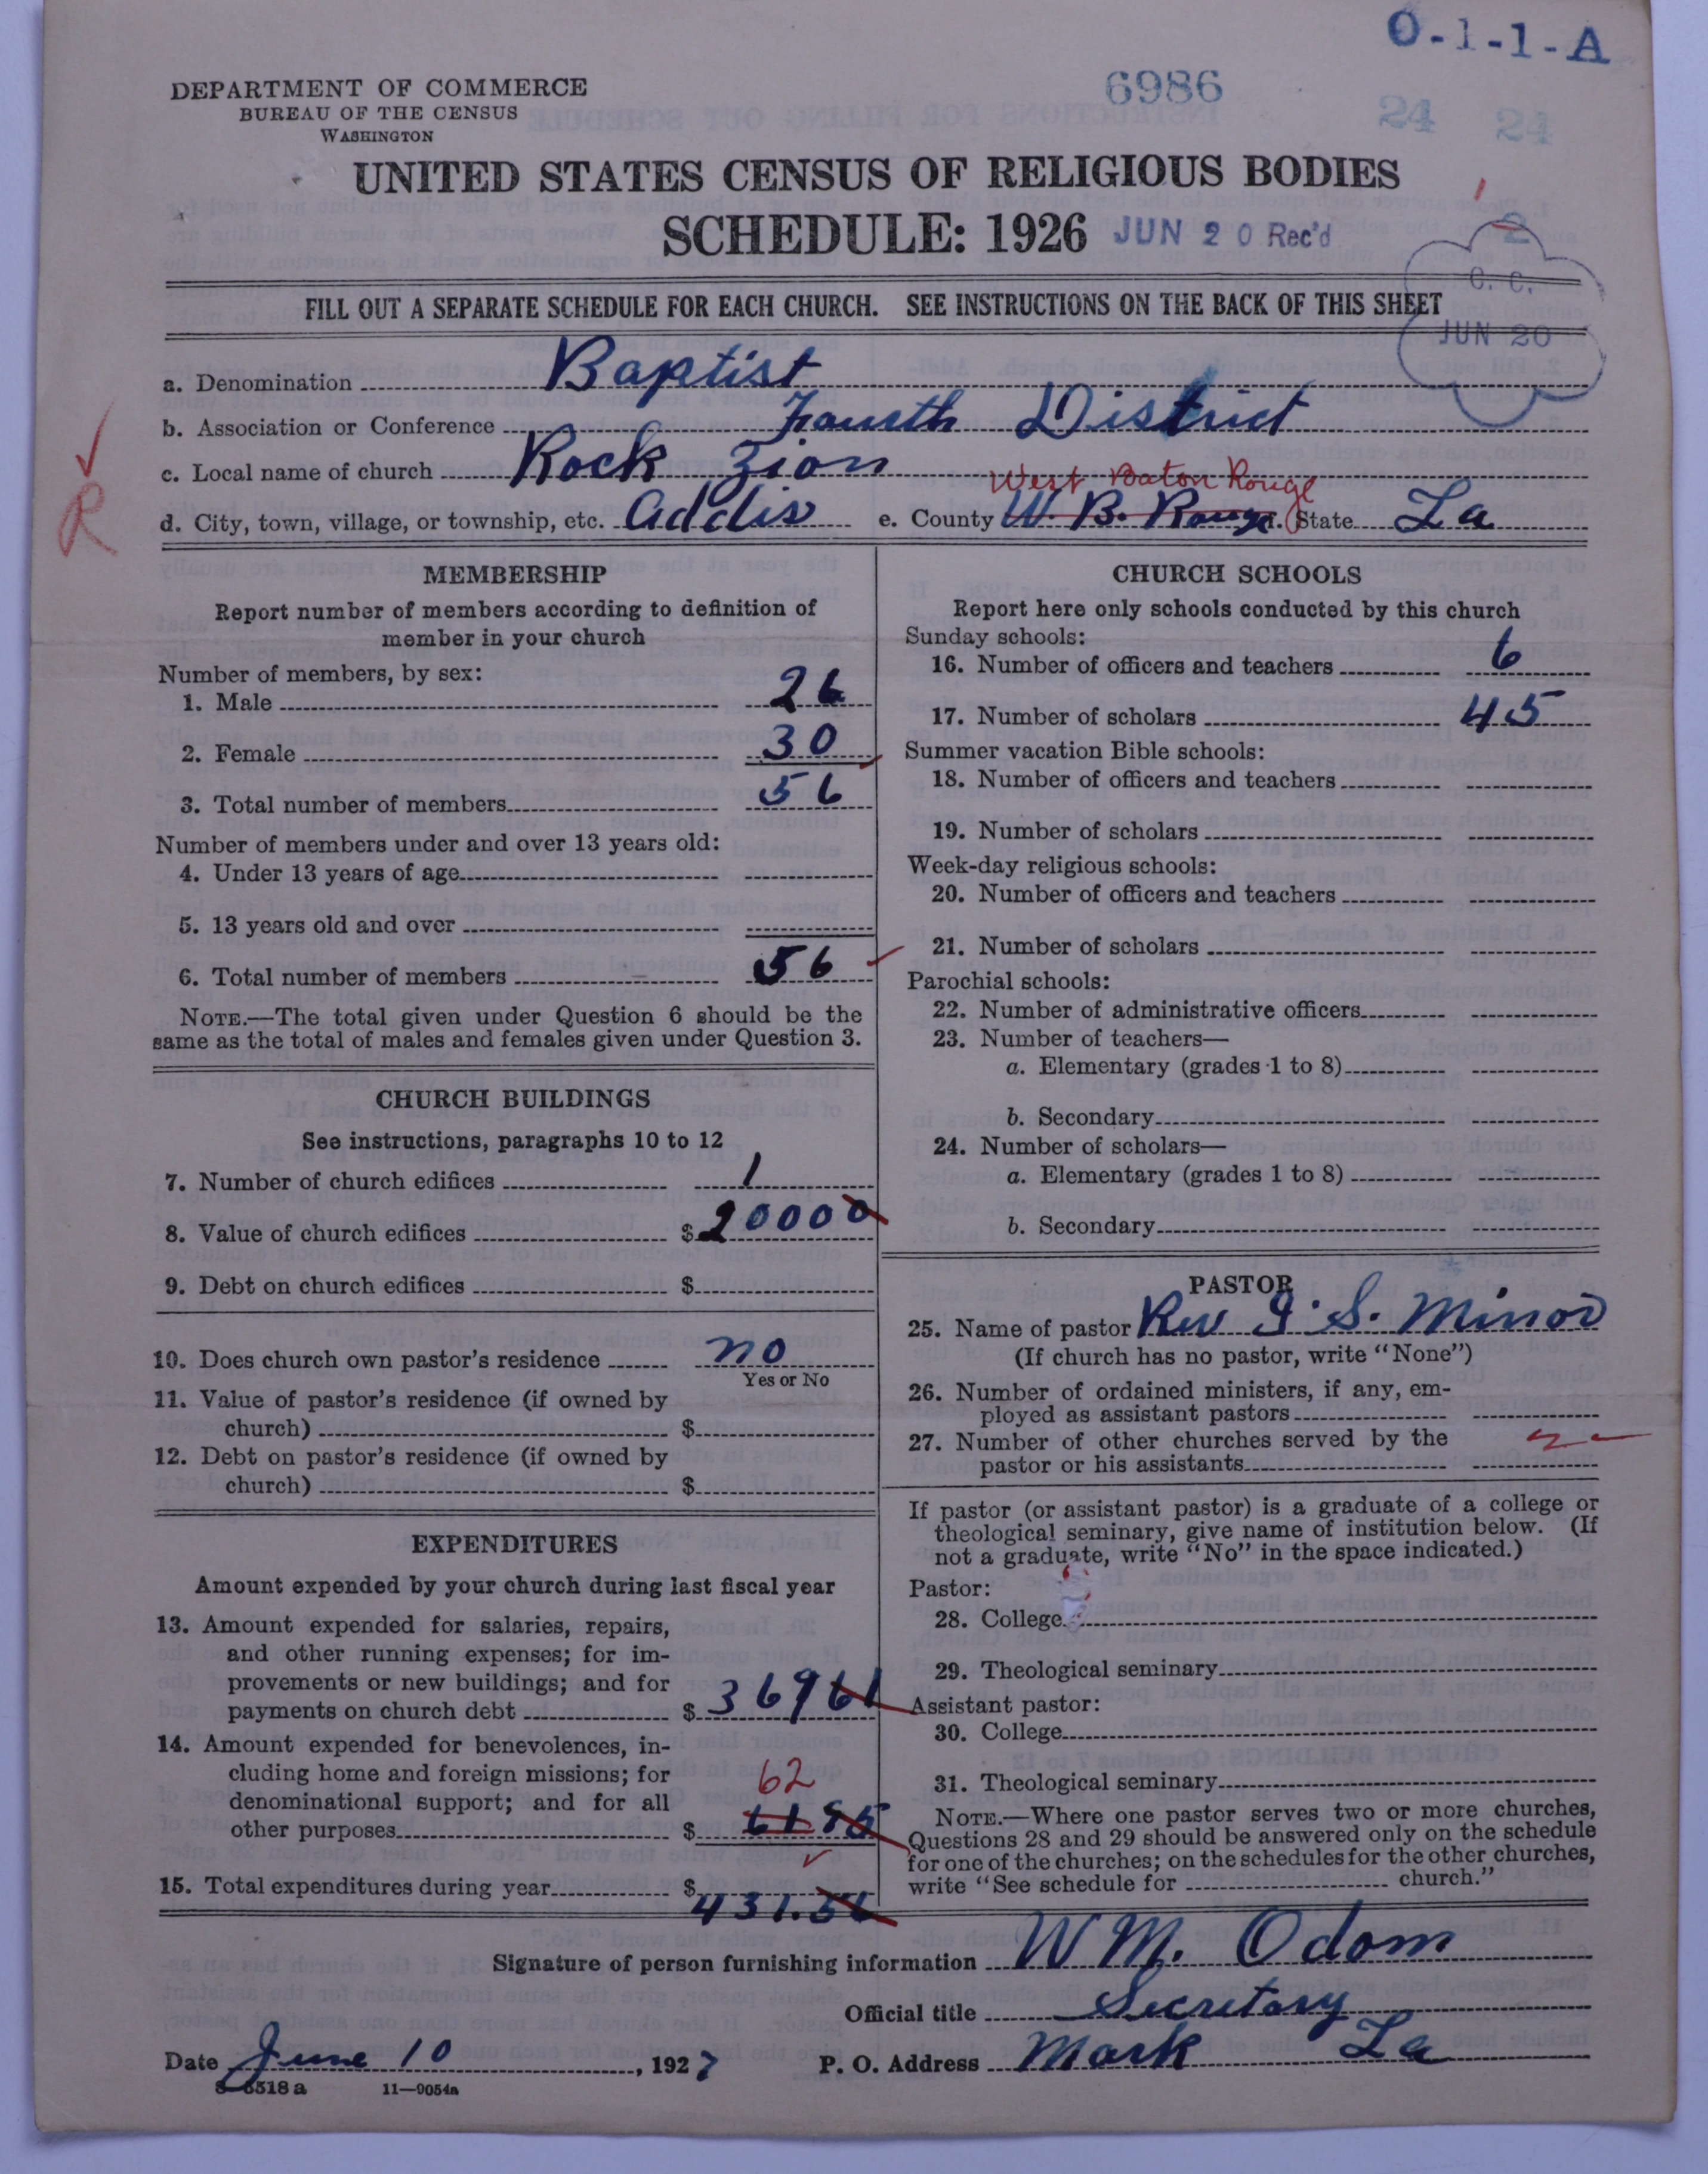 O-1-1-A
DEPARTMENT OF COMMERCE
BUREAU OF THE CENSUS
WASHINGTON
6986
24 24
UNITED STATES CENSUS OF RELIGIOUS BODIES
SCHEDULE: 1926 JUN 20 Rec'd
2
C. C.
JUN 20
FILL OUT A SEPARATE SCHEDULE FOR EACH CHURCH. SEE INSTRUCTIONS ON THE BACK OF THIS SHEET
a. Denomination Baptist
b. Association or Conference Fourth District
c. Local name of church Rock Zion
West Baton Rouge
d. City, town, village, or township, etc. Addis e. County W. B. Rouge f. State La
R
MEMBERSHIP
Report number of members according to definition of
member in your church
Number of members, by sex:
1. Male 26
2. Female 30
3. Total number of members 56
Number of members under and over 13 years old:
4. Under 13 years of age
5. 13 years old and over
6. Total number of members 56
NOTE.—The total given under Question 6 should be the
same as the total of males and females given under Question 3.
CHURCH BUILDINGS
See instructions, paragraphs 10 to 12
7. Number of church edifices 1
8. Value of church edifices $ 20000
9. Debt on church edifices $
10. Does church own pastor's residence no
Yes or No
11. Value of pastor's residence (if owned by
church) $
12. Debt on pastor's residence (if owned by
church) $
EXPENDITURES
Amount expended by your church during last fiscal year
13. Amount expended for salaries, repairs,
and other running expenses; for im-
provements or new buildings; and for
payments on church debt $ 36961
14. Amount expended for benevolences, in-
cluding home and foreign missions; for
62
denominational support; and for all
other purposes $ 6195
15. Total expenditures during year $ 431.56
CHURCH SCHOOLS
Report here only schools conducted by this church
Sunday schools:
16. Number of officers and teachers 6
17. Number of scholars 45
Summer vacation Bible schools:
18. Number of officers and teachers
19. Number of scholars
Week-day religious schools:
20. Number of officers and teachers
21. Number of scholars
Parochial schools:
22. Number of administrative officers
23. Number of teachers—
a. Elementary (grades 1 to 8)
b. Secondary
24. Number of scholars—
a. Elementary (grades 1 to 8)
b. Secondary
PASTOR
25. Name of pastor Rev I. S. Minor
(If church has no pastor, write "None")
26. Number of ordained ministers, if any, em-
ployed as assistant pastors
27. Number of other churches served by the
pastor or his assistants
If pastor (or assistant pastor) is a graduate of a college or
theological seminary, give name of institution below. (If
not a graduate, write "No" in the space indicated.)
Pastor:
28. College
29. Theological seminary
Assistant pastor:
30. College
31. Theological seminary
NOTE.—Where one pastor serves two or more churches,
Questions 28 and 29 should be answered only on the schedule
for one of the churches; on the schedules for the other churches,
write "See schedule for church."
Signature of person furnishing information W M. Odom
Official title Secretary
Date June 10, 1927 P. O. Address Mark La
8-6518 a 11—9054a